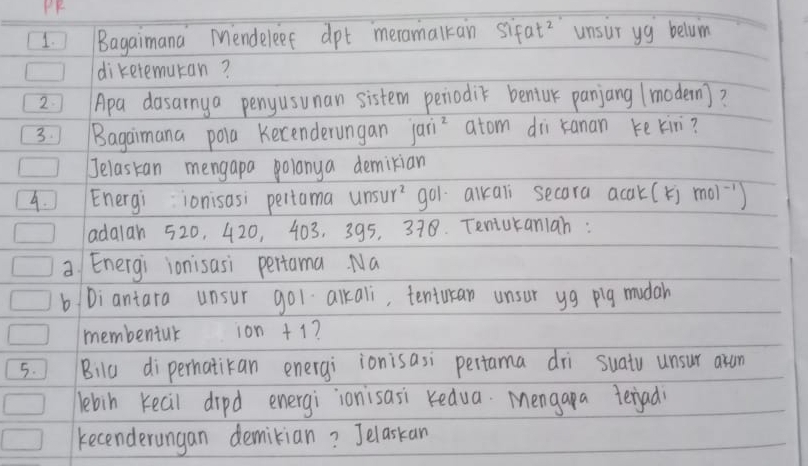 PR
1. Bagaimana Mendeleef dpt meramalkan sifat² unsur yg belum
diketemukan ?
2. Apa dasarnya penyusunan sistem periodik bentuk panjang (modern)?
3. Bagaimana pola kecenderungan jari² atom dri kanan ke kiri?
Jelaskan mengapa polanya demikian
4. Energi ionisasi pertama unsur² gol. alkali secara acak (kj mol⁻¹)
adalah 520, 420, 403, 395, 378. Tentukanlah :
a. Energi ionisasi pertama Na
b. Di antara unsur gol. alkali, tentukan unsur yg plg mudah
membentuk ion +1?
5. Bila diperhatikan energi ionisasi pertama dri suatu unsur akan
lebih kecil drpd energi ionisasi kedua. Mengapa terjadi
kecenderungan demikian ? Jelaskan